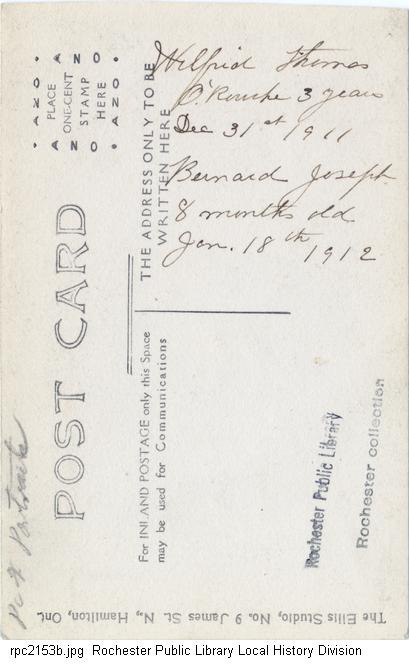 Wilfrid Thomas
O'Rourke 3 years
Dec 31st 1911
Bernard Joseph
8 months old
Jan. 18th 1912
AZO AZO
PLACE
ONE-CENT
STAMP
HERE
AZO AZO
THE ADDRESS ONLY TO BE
WRITTEN HERE
POST CARD
For INLAND POSTAGE only this Space
may be used for Communications
Rochester Public Library
Rochester collection
Portraits
The Ellis Studio, No. 9 James St. N., Hamilton, Ont.
rpc2153b.jpg Rochester Public Library Local History Division